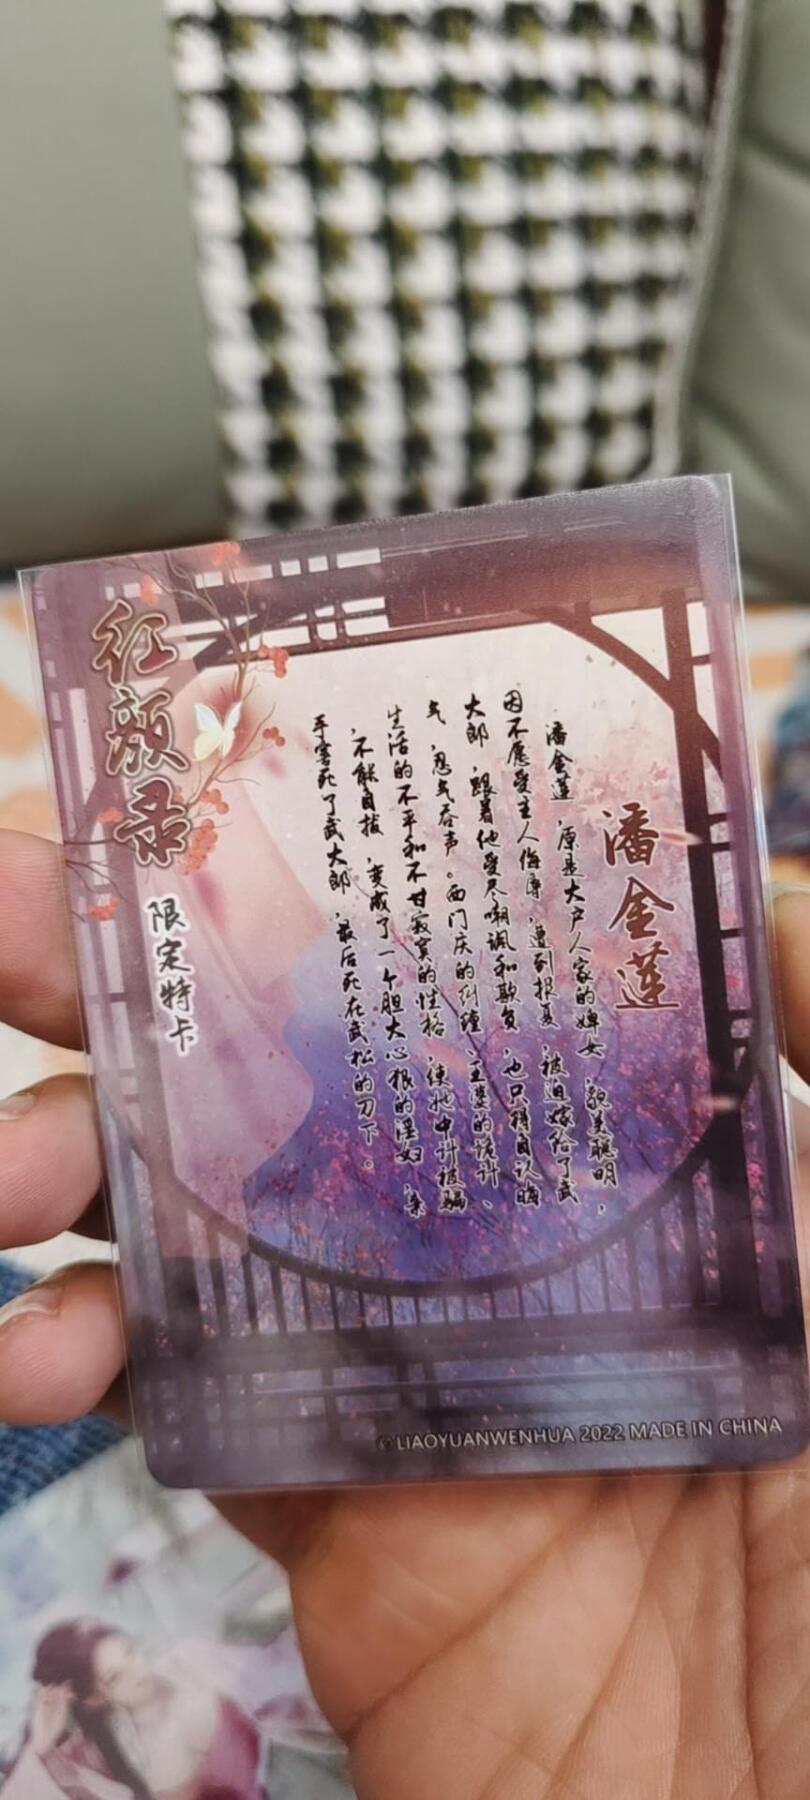 潘金莲
潘金莲,原是大户人家的婢女,貌美聪明,
因不愿受主人侮辱,遭到报复,被迫嫁给了武
大郎,跟着他受尽嘲讽和欺负,也只得自认晦
气,忍气吞声。西门庆的纠缠、王婆的诡计、
生活的不平和不甘寂寞的性格,使她中计被骗
,不能自拔,变成了一个胆大心狠的淫妇,亲
手害死了武大郎,最后死在武松的刀下。
红颜录
限定特卡
©LIAOYUANWENHUA 2022 MADE IN CHINA